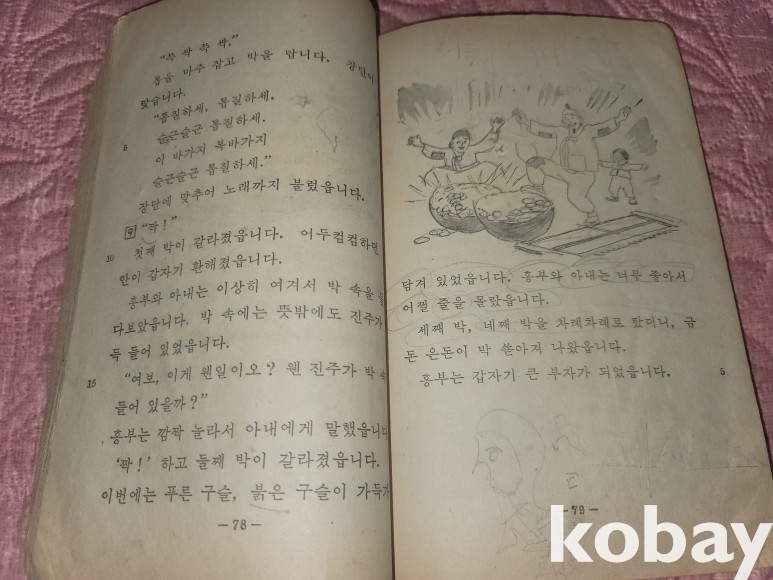 "쓱 싹 쓱 싹."
톱을 마주 잡고 박을 탑니다. 장단이
맞습니다.
"톱질하세, 톱질하세.
5 슬근슬근 톱질하세.
이 바가지 복바가지
슬근슬근 톱질하세."
장단에 맞추어 노래까지 불렀읍니다.
"짝!"
10 첫째 박이 갈라졌읍니다. 어두컴컴하던
안이 갑자기 환해졌읍니다.
흥부와 아내는 이상히 여겨서 박 속을
다보았읍니다. 박 속에는 뜻밖에도 진주가
득 들어 있었읍니다.
15 "여보, 이게 웬일이오? 웬 진주가 박 속
들어 있을까?"
흥부는 깜짝 놀라서 아내에게 말했읍니다
'짝!' 하고 둘째 박이 갈라졌읍니다.
이번에는 푸른 구슬, 붉은 구슬이 가득
— 78 —
담겨 있었읍니다. 흥부와 아내는 너무 좋아서
어쩔 줄을 몰랐읍니다.
세째 박, 네째 박을 차례차례로 탔더니, 금
돈 은돈이 막 쏟아져 나왔읍니다.
흥부는 갑자기 큰 부자가 되었읍니다. 5
— 79 —
kobay